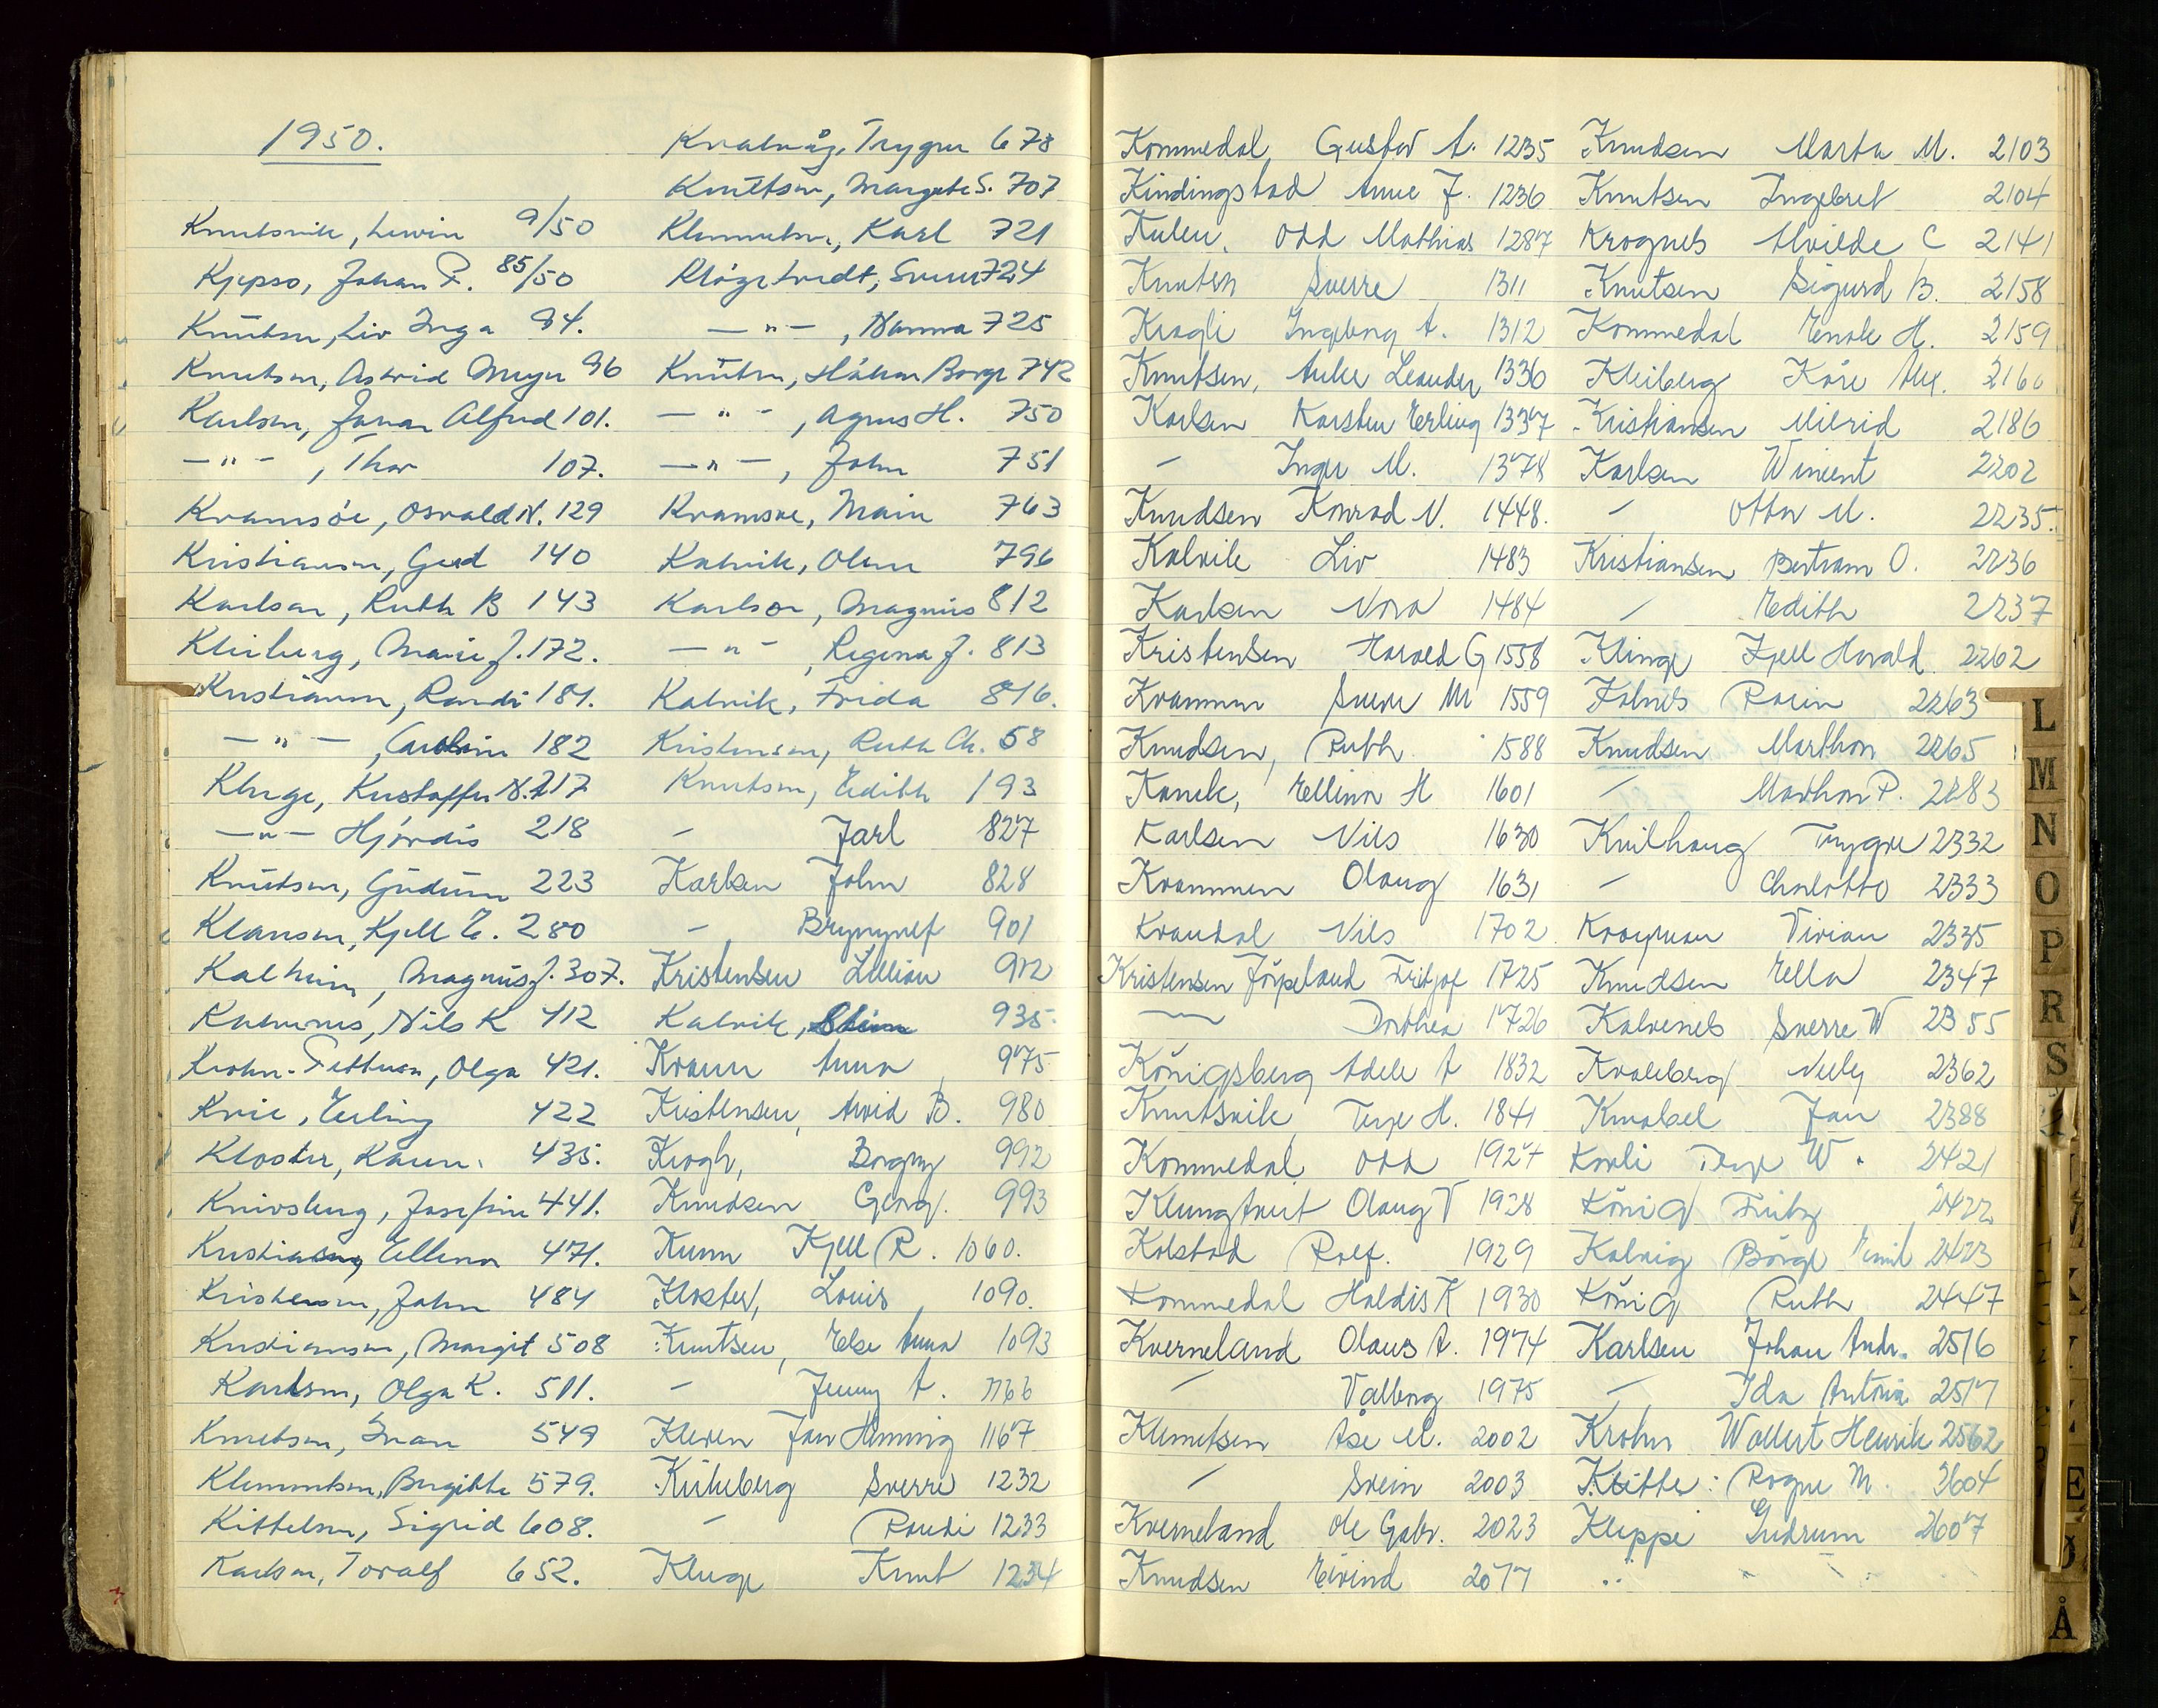 1950.
Knutsvik, Lewin 9/50
Kjepso, Johan F. 85/50
Knutsen, Liv Inga 94.
Knutsen, Astrid Meyer 96
Karlsen, Johan Alfred 101.
—"—, Thor 107.
Kramsöe, Osvald N. 129
Kristiansen, Gerd 140
Karlsen, Ruth B 143
Kleiberg, Marie J. 172.
Kristiansen, Randi 181.
—"—, 182
Kluge, Kristoffer N. 217
—"— Hjördis 218
Knutsen, Gudrun 223
Klausen, Kjell E. 280
Kalheim, Magnus J. 307.
Nils K 412
Krohn-Pettersen, Olga 421.
Kvie, Erling 422
Kloster, Karen. 435.
Knivsberg, Josefine 441.
Kristiansen, Ellena 471.
Kristensen, John 484
Kristiansen, Margit 508
Karlsen, Olga K. 511.
Knutsen, Ivan 549
Klemmetsen, Bergitte 579.
Kittelsen, Sigrid 608.
Karlsen, Toralf 652.
Kvalvåg, Trygve 678
Knutsen, Margrete S. 707
Klemmetsen, Karl 721
Klögetvedt, Sverre 724
—"—, Nanna 725
Knutsen, Håkon Borge 742
—"—, Agnes H. 750
—"—, John 751
Kramsøe, Marie 763
Kalvik, Olene 796
Karlsen, Magnus 812
—"—, Regina J. 813
Kalvik, Frida 816.
Kristensen, Ruth Ch. 58
Knutsen, Edith 193
— Jarl 827
Karlsen John 828
— Brynjulf 901
Kristensen Lillian 912
Kalvik, 935.
Anna 975
Kristensen, Arvid B. 980
Krogh, Borgny 992
Knudsen Georg. 993
Kunn Kjell R. 1060.
Kloster, Louis 1090.
Knutsen, Else Anna 1093
— Jenny A. 1166
Kleven Jan Henning 1167
Kirkeberg Sverre 1232
— Randi 1233
Kluge Knut 1234
Kommedal, Gustav A. 1235
Kindingstad Anne J. 1236
Kulen, Odd Mathias 1287
Knutsen Sverre 1311
Kragli Ingeborg A. 1312
Knutsen, Anker Leander 1336
Karlsen Karsten Erling 1337
— Inger M. 1378
Knudsen Konrad N. 1448.
Kalvik Liv 1483
Karlsen Nora 1484
Kristensen Harald G 1558
Krammen Sverre M 1559
Knudsen, Ruth 1588
Kanck, Ellinor H 1601
Karlsen Nils 1630
Krammen Olaug 1631
Kraudal Nils 1702
Kristensen Jörpeland Fritjof 1725
— Dorthea 1726
Königsberg Adele A 1832
Knutsvik Terje H. 1841
Kommedal Odd 1927
Klungtveit Olaug V 1928
Kolstad Rolf. 1929
Kommedal Haldis K 1930
Kverneland Olaus A. 1974
— Valborg 1975
Klemetsen Åse M. 2002
— Svein 2003
Kverneland Ole Gabr. 2023
Knudsen Eivind 2077
Knudsen Marta M. 2103
Knutsen Ingebret 2104
Krognes Alvilde C 2141
Knutsen Sigurd B. 2158
Kommedal Enok H. 2159
Kleiberg Kåre Alex. 2160
Kristiansen Milrid 2186
Karlsen Wincent 2202
— Otto M. 2235.
Kristiansen Bertram O. 2236
— Edith 2237
Klinge Kjell Harald 2262
Kolnes 2263
Knudsen Marthon 2265
— Marthon P. 2283
Knilhaug Trygve 2332
— Charlotte 2333
Vivian 2335
Knudsen Ella 2347
Kalvenes Sverre W 2355
Kvaleberg Nelly 2362
Knabel Jan 2388
Terje W. 2421
König Fritz 2422
Kalvig Börge Emil 2423
König Ruth 2447
Karlsen Johan Andr. 2516
— Ida Antonia 2517
Krohn Wollert Henrik 2562
Kleitte: Ragne M. 2604
Kleppe Gudrun 2607
L
M
N
O
P
R
S
E
Ø
Å